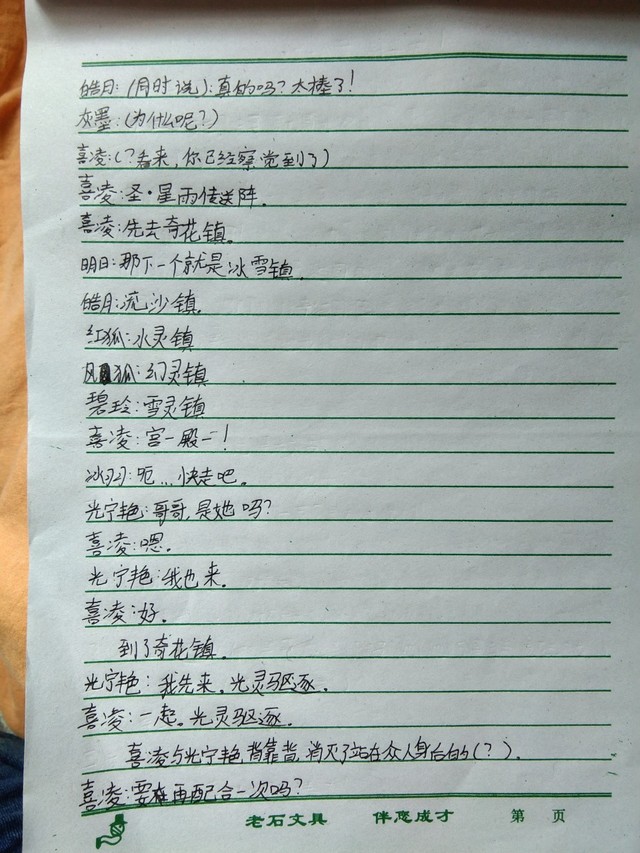 皓月:(同时说):真的吗?太棒了!
灰墨:(为什么呢?)
喜凌:(?看来,你已经察觉到了)
喜凌:圣·星雨传送阵。
喜凌:先去奇花镇。
明日:那下一个就是冰雪镇。
皓月:流沙镇。
红狐:水灵镇
风狐:幻灵镇
碧玲:雪灵镇
喜凌:宫一殿一!
冰羽:呃...快走吧。
光宁艳:哥哥,是她吗?
喜凌:嗯。
光宁艳:我也来。
喜凌:好。
到了奇花镇。
光宁艳:我先来。光灵驱逐。
喜凌:一起。光灵驱逐。
喜凌与光宁艳,背靠背,消灭了站在众人身后的(?)。
喜凌:要再配合一次吗?
老石文具 伴您成才 第 页